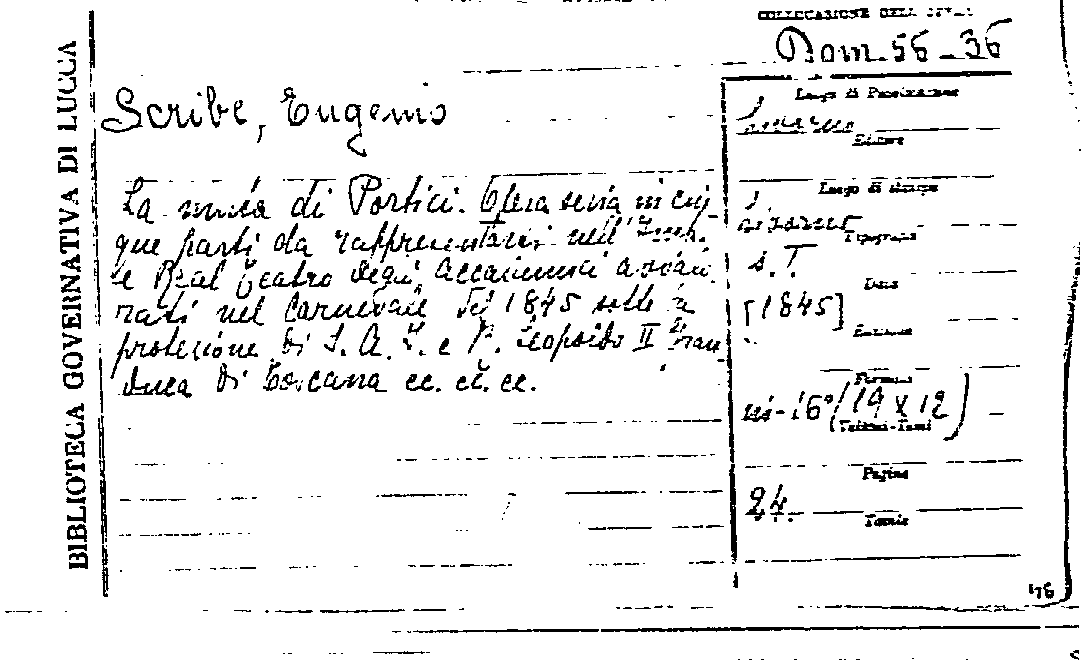 BIBLIOTECA GOVERNATIVA DI LUCCA
COLLOCAZIONE DELL'OPERA
Dom. 56-36
Scribe, Eugenio
La muta di Portici. Opera seria in cin-
que parti da rappresentarsi nell'Imp.
e Real Teatro degli Accademici avvalo-
rati nel Carnevale del 1845 sotto la
protezione di S. A. I. e R. Leopoldo II Gran
duca di Toscana ec. ec. ec.
Luogo di Pubblicazione
Livorno
Editore
Luogo di stampa
Livorno
Tipografia
s. T.
Data
[1845]
Edizione
Formato
in-16° (19 x 12)
Volumi-Tomi
Pagine
24.
Tavole